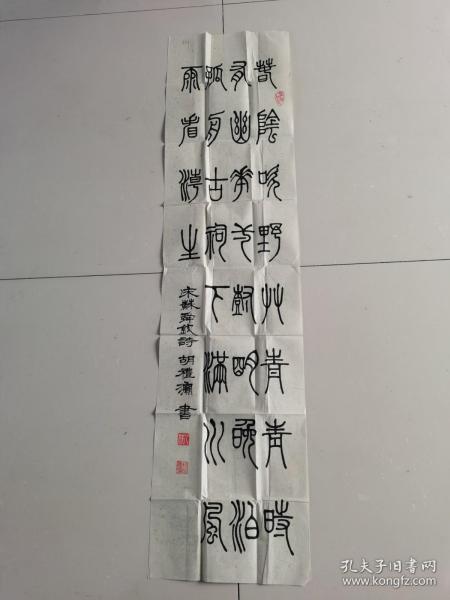 春陰垂野艸青青時
有幽華弌樹明晚泊
孤舟古祠下滿川風
雨看潮生
宋蘇舜欽詩 胡禮 書
孔夫子旧书网
www.kongfz.com